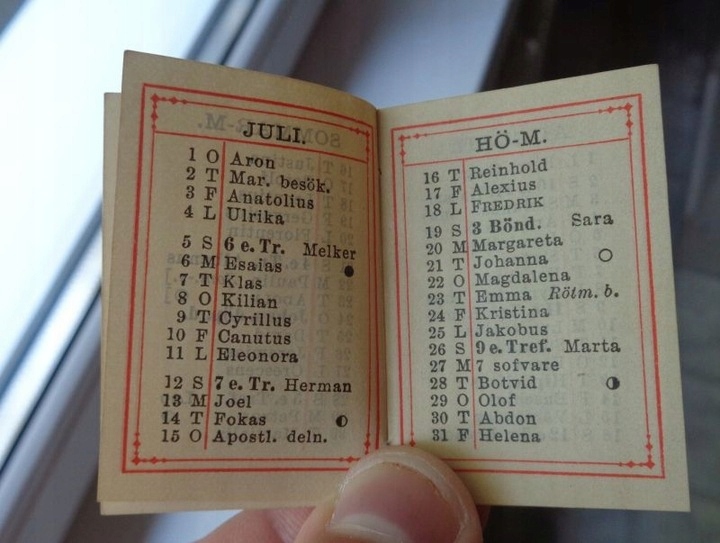 JULI.
1 O Aron
2 T Mar. besök.
3 F Anatolius
4 L Ulrika
5 S 6 e. Tr. Melker
6 M Esaias
7 T Klas
8 O Kilian
9 T Cyrillus
10 F Canutus
11 L Eleonora
12 S 7 e. Tr. Herman
13 M Joel
14 T Fokas
15 O Apostl. deln.
HÖ-M.
16 T Reinhold
17 F Alexius
18 L FREDRIK
19 S 3 Bönd. Sara
20 M Margareta
21 T Johanna
22 O Magdalena
23 T Emma Rötm. b.
24 F Kristina
25 L Jakobus
26 S 9 e. Tref. Marta
27 M 7 sofvare
28 T Botvid
29 O Olof
30 T Abdon
31 F Helena